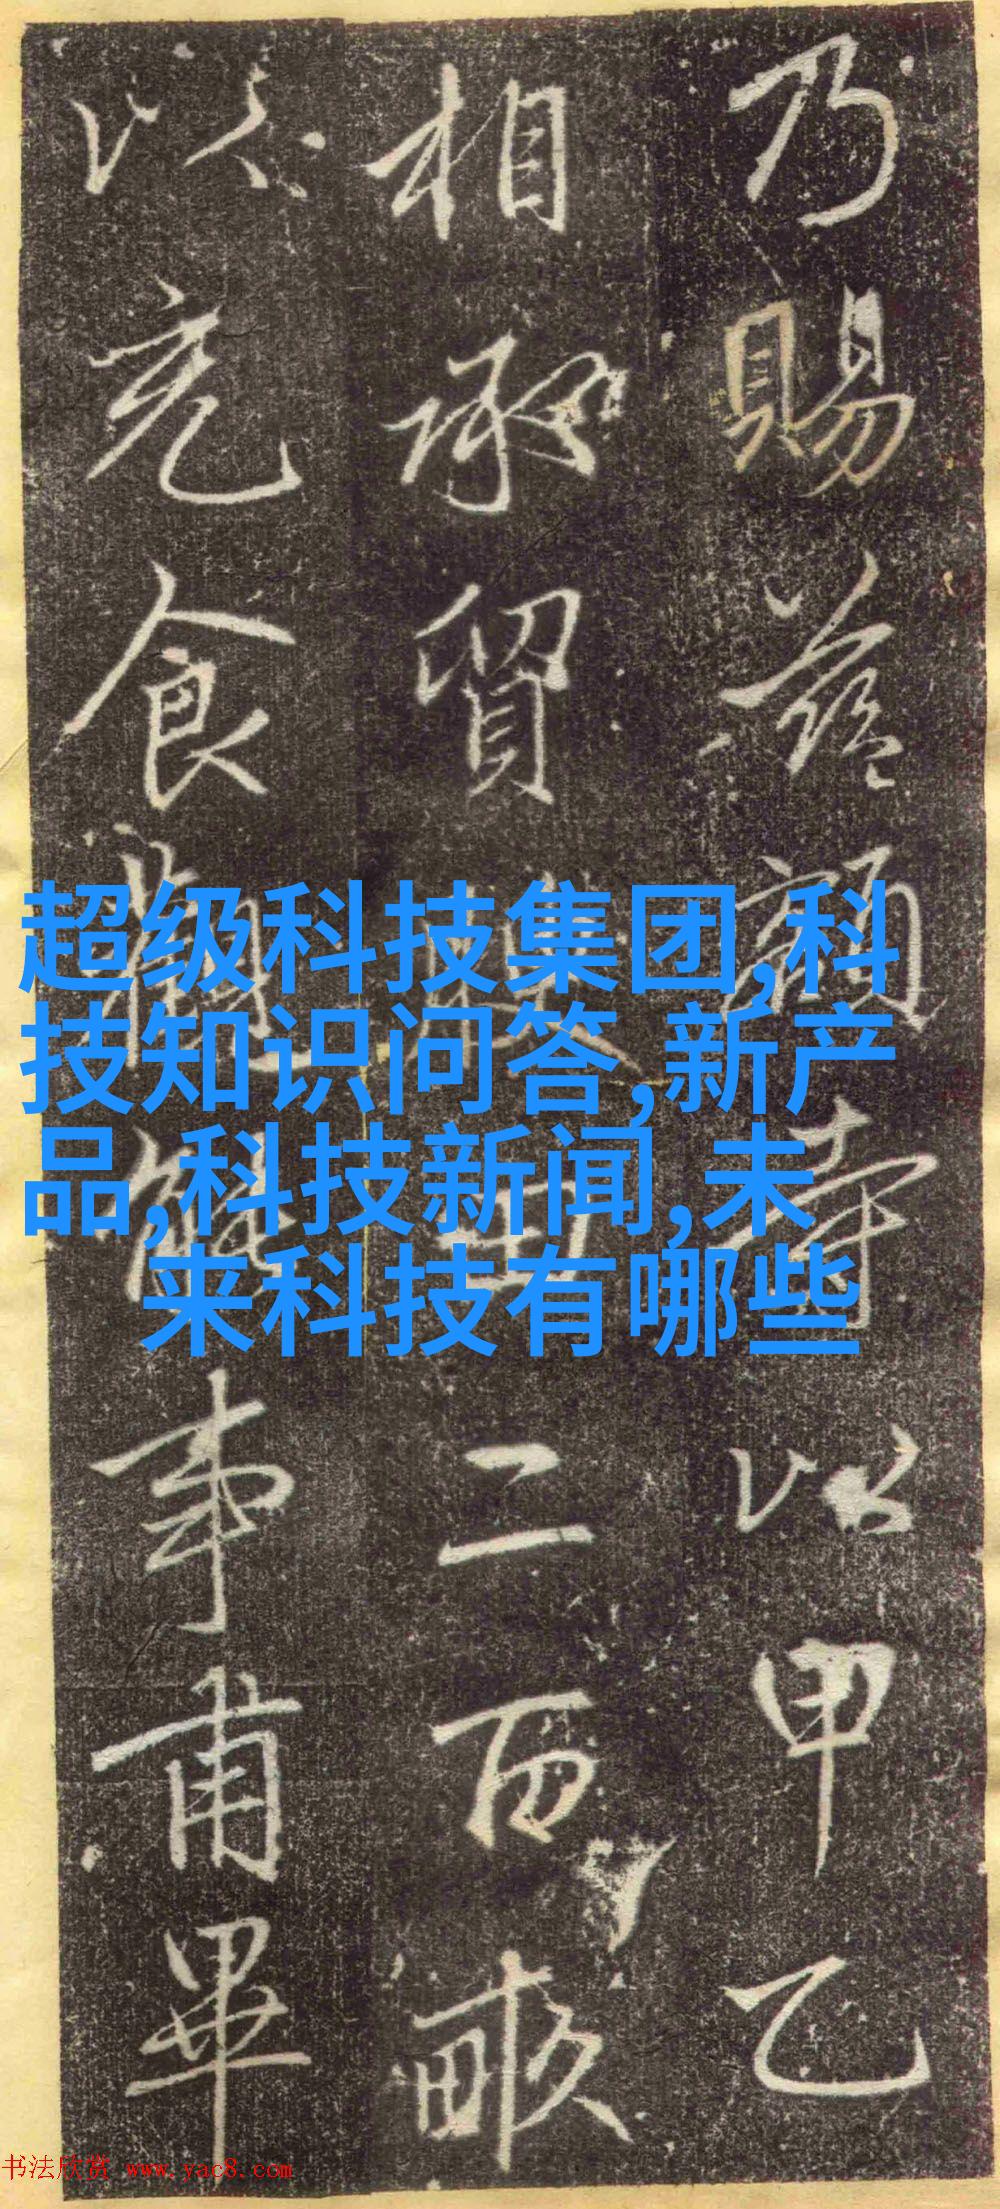 超级科技集团,科
技知识问答,新产
品,科技新闻,未
来科技有哪些
乃賜壽以甲乙
相承貿田二百畝
以充食能事甫畢
书法欣赏 www.yac8.com